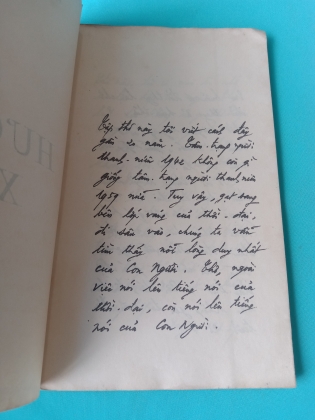 HƯƠ
X
Tập thơ này tôi viết cách đây
gần 20 năm. Tâm trạng người
thanh niên 1942 không còn gì
giống tâm trạng người thanh niên
1959 nữa. Tuy vậy, gạt sang
bên lớp váng của thời-đại,
đi sâu vào, chúng ta vẫn
tìm thấy nỗi lòng duy nhất
của Con Người. Thơ, ngoài
việc nói lên tiếng nói của
thời-đại, còn nói lên tiếng
nói của Con Người.